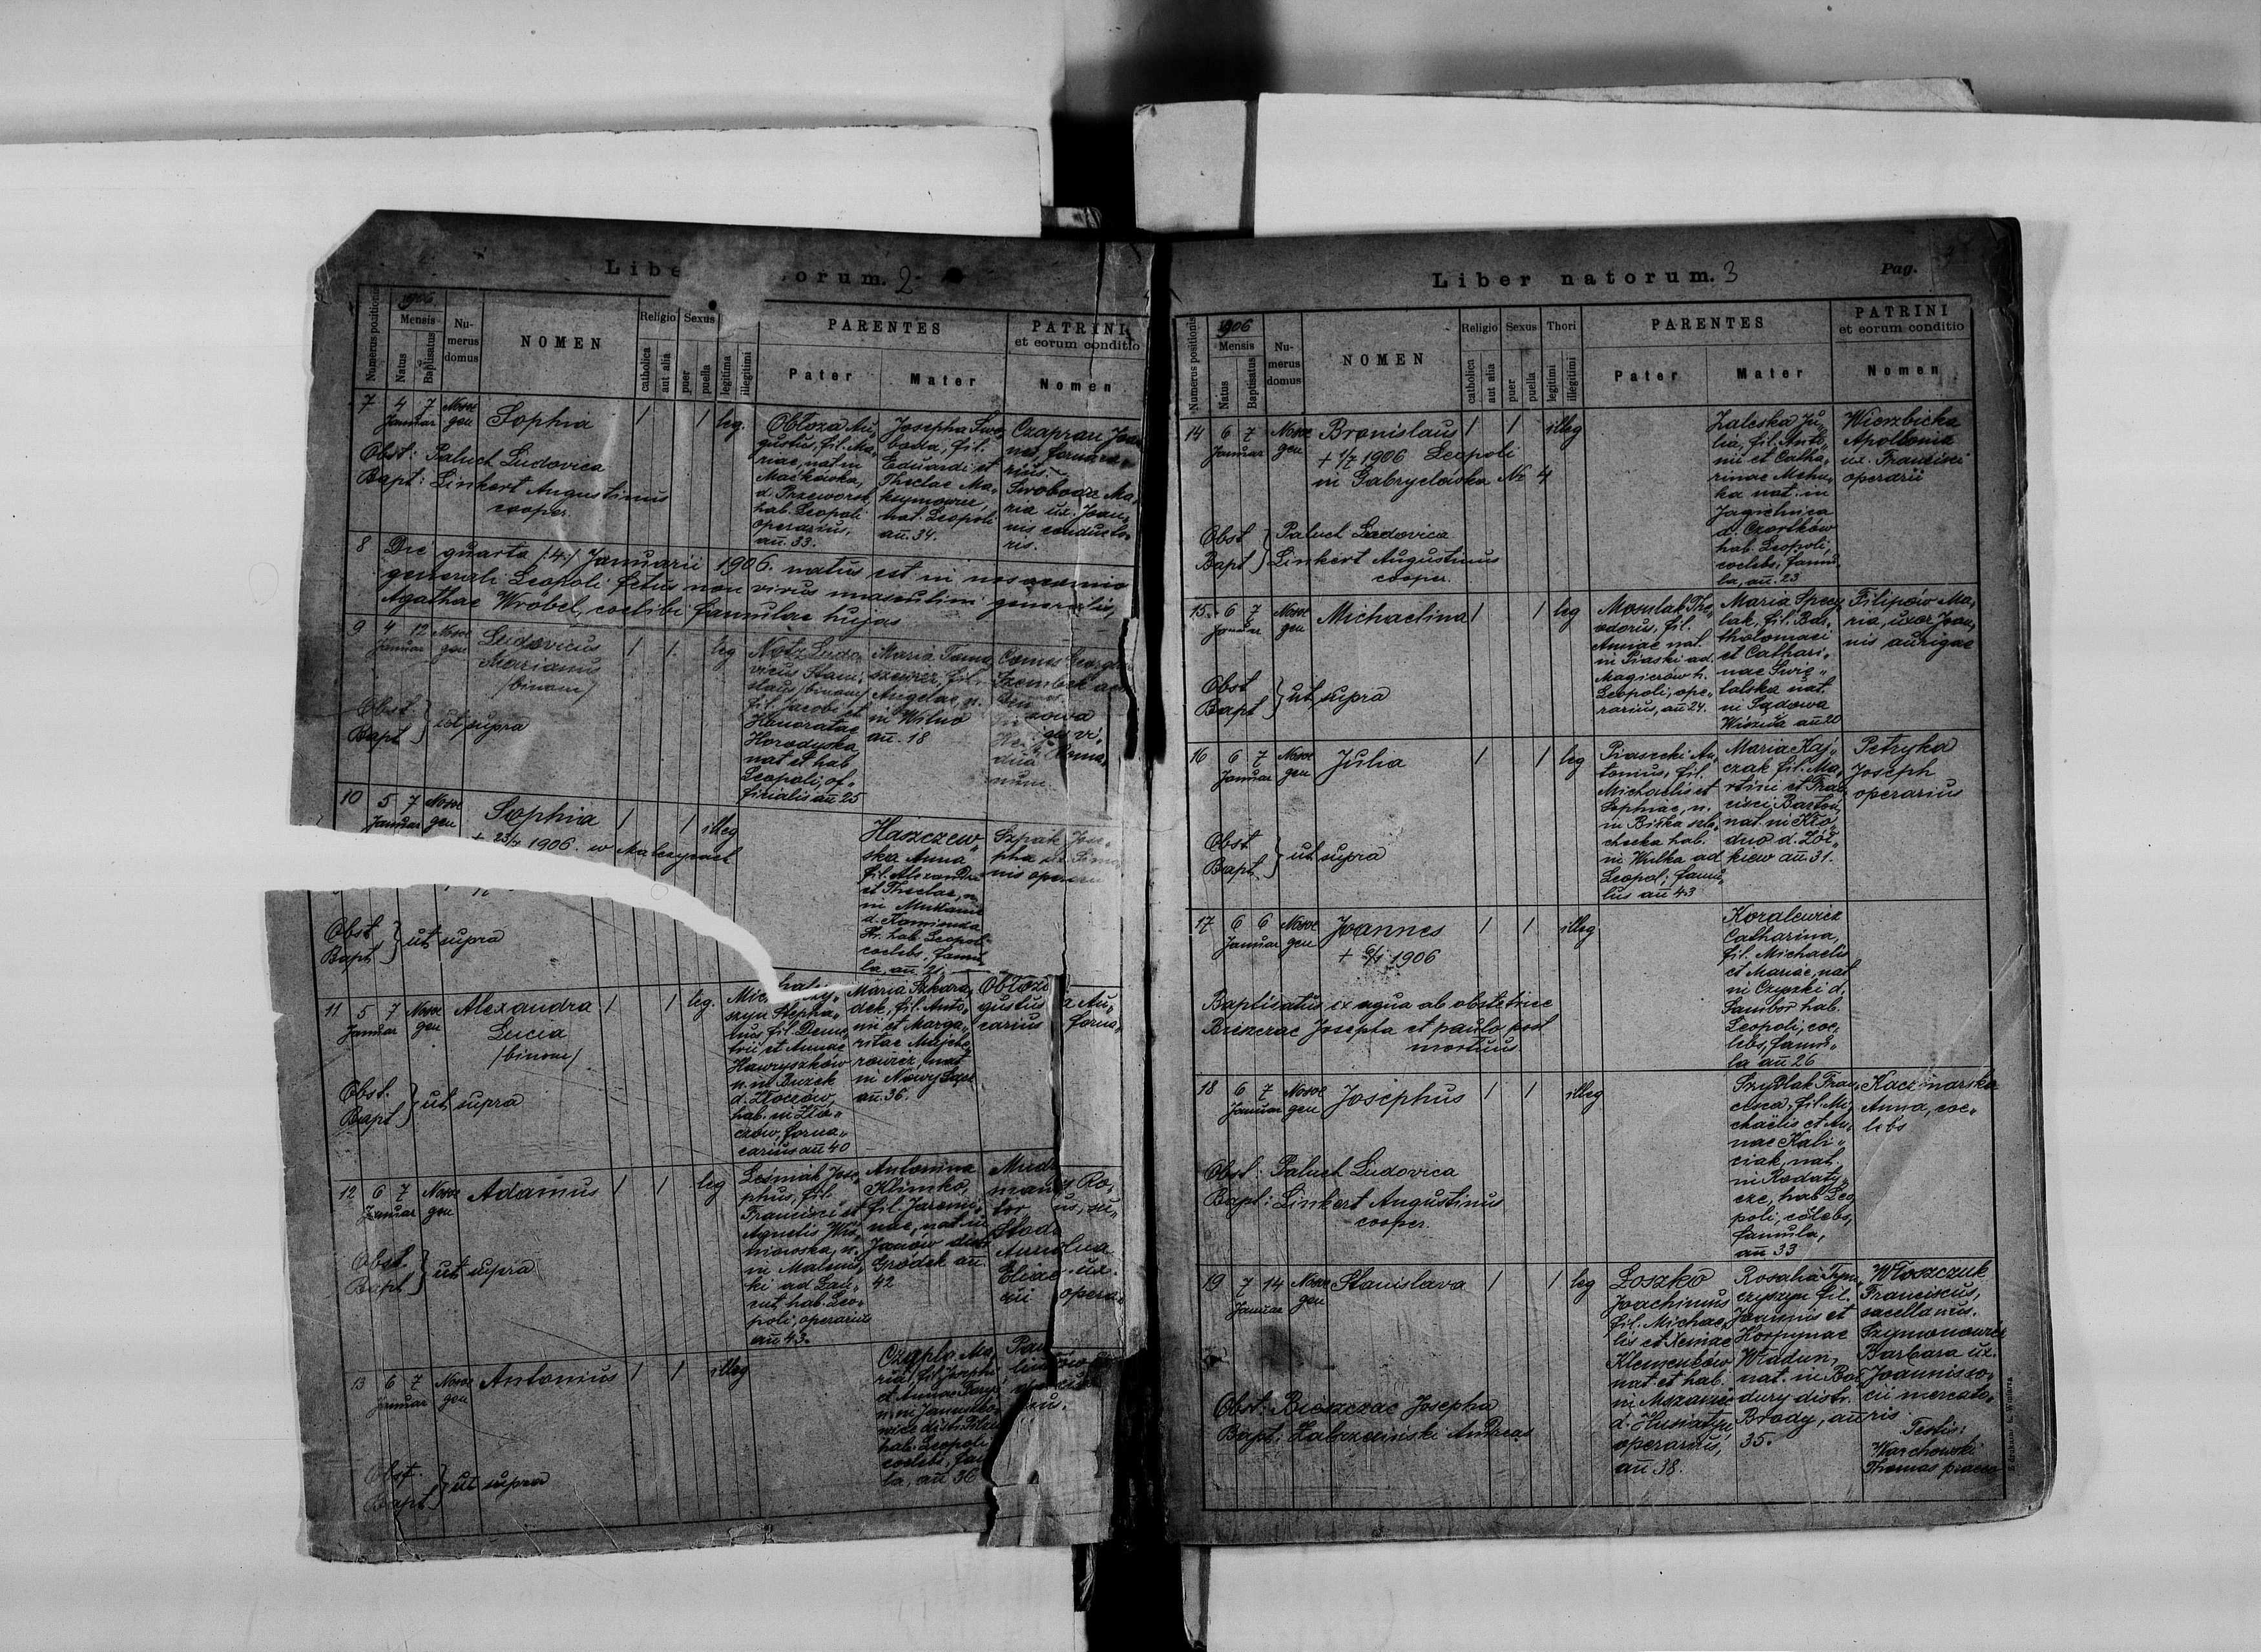 Liber natorum. 2
1906
Numerus positionis
Mensis
Natus
Baptisatus
Numerus domus
NOMEN
Religio
catholica
aut alia
Sexus
puer
puella
legitima
illegitimi
PARENTES
Pater
Mater
PATRINI
et eorum conditio
Nomen
7
4 7
Januar
Nosoc
gen
Sophia
1
1
leg.
Obłoza Au„
gustus, fil. Ma„
riae, nat. in
Maćkówka,
d. Przeworsk,
hab. Leopoli
operarius,
an. 33.
Josepha Swo„
boda, fil.
Eduardi et
Theclae Ma„
ksymowicz,
nat. Leopoli
an. 34.
Czapran Joan„
nes, fornaca„
rius.
Swoboda Ma„
ria ux. Joan„
nis conducto„
ris.
Obst: Paluch Ludovica
Bapt: Linkert Augustinus
cooper.
8
Die quarta /:4:/ Januarii 1906. natus est in nosocomio
generali Leopoli fetus non vivus masculini generalis,
Agathae Wróbel, coelibi famulae hujas
9
4 12
Januar
Nosoc
gen
Ludovicus
Marianus
/binom/
1
1
leg
Notz Ludo„
vicus Stani„
slaus /binom/
fil. Jacobi et
Honoratae
Horodyska,
nat et hab
Leopoli, of„
ficialis an 25
Maria Toma„
szewicz, fil.
Angelae, n.
in Wilno
an. 18
Comes Georgi
Szembek
Obst
Bapt } ut supra
10
5 7
Januar
Nosoc
gen
Sophia
1
1
illeg
+ 23/7 1906. w Malczycach
Haszczew„
ska Anna
fil. Alexandri
et Theclae, n.
in
d. Kamionka
Str. hab. Leopoli
coelebs, famu„
la, an. 21
Szpak Jose„
pha ux. Simo„
nis operarii
Obst
Bapt } ut supra
11
5 7
Januar
Nosoc
gen
Alexandra
Lucia
/binom/
1
1
leg.
szyn Stepha„
nus fil. Deme„
trii et Annae
Hawryszków
n. in Buzek
d. Złoczów,
hab. in Zło„
czów, forna„
carius an 40
Maria Szkara„
dek, fil. Anto„
nii et Marga„
ritae Majche„
rowicz, nat
in Nowy Sącz
an. 36.
Obłoza Au„
gustus forna„
carius
Obst.
Bapt } ut supra
12
6 7
Januar
Nosoc
gen
Adamus
1
1
leg
Leśniak Jose„
phus, fil.
Francisci et
Agnetis Wiś„
niowska, n.
in
ki ad Łań„
cut, hab. Leo„
poli, operarius
an 43.
Antonina
Klimko,
fil. Jaremi„
nae, nat. in
Janów distr
Gródek an.
42
Obst.
Bapt } ut supra
13
6 7
Januar
Nosoc
gen
Antonius
1
1
illeg
Czapla Ma„
ria, fil. Josephi
et Annae
n. in Januszko„
wice dist. Pilzno
hab. Leopoli,
coelebs, famu
la, an 36
Obst.
Bapt } ut supra
Liber natorum. 3
Pag.
1906
Numerus positionis
Mensis
Natus
Baptisatus
Numerus domus
NOMEN
Religio
catholica
aut alia
Sexus
puer
puella
Thori
legitimi
illegitimi
PARENTES
Pater
Mater
PATRINI
et eorum conditio
Nomen
14
6 7
Januar
Nosoc
gen
Bronislaus
1
1
illeg
+ 1/7 1906 Leopoli
in Gabryelówka Nr 4
Zaleska Ju„
lia, fil. Anto„
nii et Catha„
rinae Mehu„
ka nat. in
Jagielnica
d. Czortków
hab. Leopoli,
coelebs, famu„
la, an. 23
Wierzbicka
Apollonia
ux. Francisci
operarii
Obst
Bapt } Paluch Ludovica
Linkert Augustinus
cooper.
15.
6 7
Januar
Nosoc
gen
Michaelina
1
1
leg
Mosulak The„
odorus, fil.
Annae nat.
in Piaski ad.
Magierów h.
Leopoli, ope„
rarius, an 24.
Maria Specy„
lak, fil. Bar„
tholomaei
et Cathari„
nae Świę„
talska nat.
in Sądowa
Wisznia an 20
Filipów Ma„
ria, uxor Joan„
nis aurigae
Obst
Bapt } ut supra
16
6 7
Januar
Nosoc
gen
Julia
1
1
leg
Piasecki An„
tonius, fil.
Michaelis et
Sophiae, n.
in Biłka szla„
checka hab.
in Wulka ad
Leopol; famu„
lus an 43
Maria Kaj„
czak fil. Ma„
rtini et Fran
cisci Barton,
nat. in Kło„
dno d. Żół„
kiew an 31.
Petryka
Joseph
operarius
Obst
Bapt } ut supra
17
6 6
Januar
Nosoc
gen
Joannes
1
1
illeg
+ 6/1 1906
Koralewicz
Catharina,
fil. Michaelis
et Mariae, nat
in Czyszki d.
Sambor hab.
Leopoli, coe„
lebs, famu„
la an 26
Baptisatus ex aqua ab obstetrice
Bieszczac Josepha et paulo post
mortuus.
18
6 7
Januar
Nosoc
gen
Josephus
1
1
illeg
Szydlak Fran„
cisca, fil. Mi„
chaelis et An„
nae Kali„
ciak, nat.
in Rodaty„
cze, hab Leo
poli, cölebs,
famula,
an 33
Kaczmarska
Anna, coe„
lebs
Obst: Paluch Ludovica
Bapt: Linkert Augustinus
cooper.
19
7 14
Januar
Nosoc
gen
Stanislava
1
1
leg
Łoszko
Joachimus
fil. Michae„
lis et Xeniae
Klemenków
nat. et hab.
in
d. Husiatyn,
operarius,
an 38.
Rosalia Tym„
czyszyn fil.
Joannis et
Horpynae
Władun,
nat. in Bo„
dury distr.
Brody, an
35.
Włoszczuk
Franciscus,
sacellanus.
Szymonowicz
Barbara ux.
Joannis so„
cii mercato„
ris
Testis:
Warchowski
Thomas praeco
Obst: Bieszczac Josepha
Bapt: Zabrzeziński Andreas